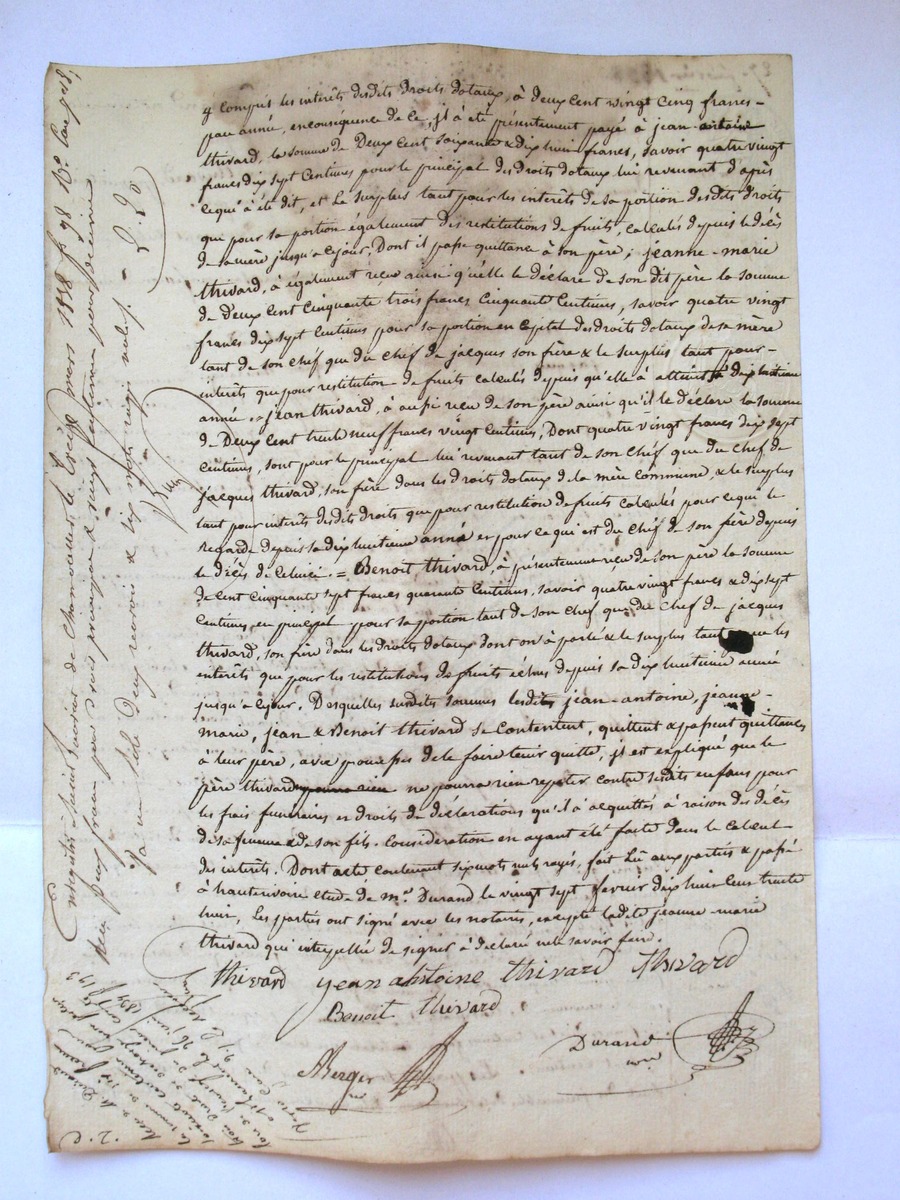 y compris les intérêts desdits droits dotaux, à deux cent vingt cinq francs -
par année, en conséquence de ce, jl à été présentement payé à jean antoine
thivard, la somme de Deux cent soixante & dix huit francs, savoir quatre vingt
francs dix sept Centimes pour le principal des droits dotaux lui revenant d'après
cequi à été dit, et le surplus tant pour les intérêts de sa portion desdits droits
que pour sa portion également des restitutions de fruits, calculés depuis le décès
de sa mère jusqu'à cejour, Dont il passe quittance à son père; jeanne-marie
thivard, à également reçu ainsi qu'elle le déclare de son dit père la somme
de Deux cent cinquante trois francs Cinquante Centimes, savoir quatre vingt
francs dix sept Centimes pour sa portion en capital des droits dotaux de sa mère
tant de son chef que du chef de jacques son frère & le surplus tant pour -
intérêts que pour restitution de fruits calculés depuis qu'elle à atteint sa dix huitième
année. = jean thivard, à aussi reçu de son père ainsi qu'il le déclare la somme
de Deux cent trente neuf francs vingt Centimes, Dont quatre vingt francs dix sept
centimes, sont pour le principal lui revenant tant de son Chef que du chef de
jacques thivard, son frère dans les droits dotaux de la mère commune, & le surplus
tant pour intérêts desdits droits que pour restitution de fruits calculés pour cequi le
regarde depuis sa dix huitieme année et pour ce qui est du chef de son frère depuis
le décès de celuici. = Benoit thivard, à présentement reçu de son père la somme
de cent Cinquante sept francs quarante Centimes, savoir quatre vingt francs & dix sept
Centimes, en principal pour sa portion tant de son chef que du chef de jacques
thivard, son frère dans les droits dotaux dont on à parlé & le surplus tant les
intérêts que pour les restitutions de fruits échus depuis sa dix huitieme année
jusqu'à cejour. Desquelles susdites sommes lesdits jean-antoine, jeanne-
marie, jean & Benoit thivard se Contentent, quittent & passent quittances
à leur père, avec promesse de le faire tenir quitte, jl est expliqué que le
père thivard ne pourra rien repeter contre sesdits enfans pour
les frais funéraires et droits de déclarations qu'il à acquittés à raison des décès
de sa femme & de son fils. Considération en ayant été faite dans le calcul
des intérêts. Dont acte contenant six mots nuls rayés, fait Lû aux parties & passé
à hauterivoire etude de me. Durand le vingt sept février dix huit Cent trente
huit, Les parties ont signé avec les notaires, excepté ladite jeanne-marie
thivard qui interpellée de signer à déclaré ne le savoir faire.
thivard jean antoine thivard thivard
Benoit thivard
Berger Durand
nre nre
Enregistré Saint Laurent de Chamousset le treize mars 1838 fo 98
Reçu francs pour